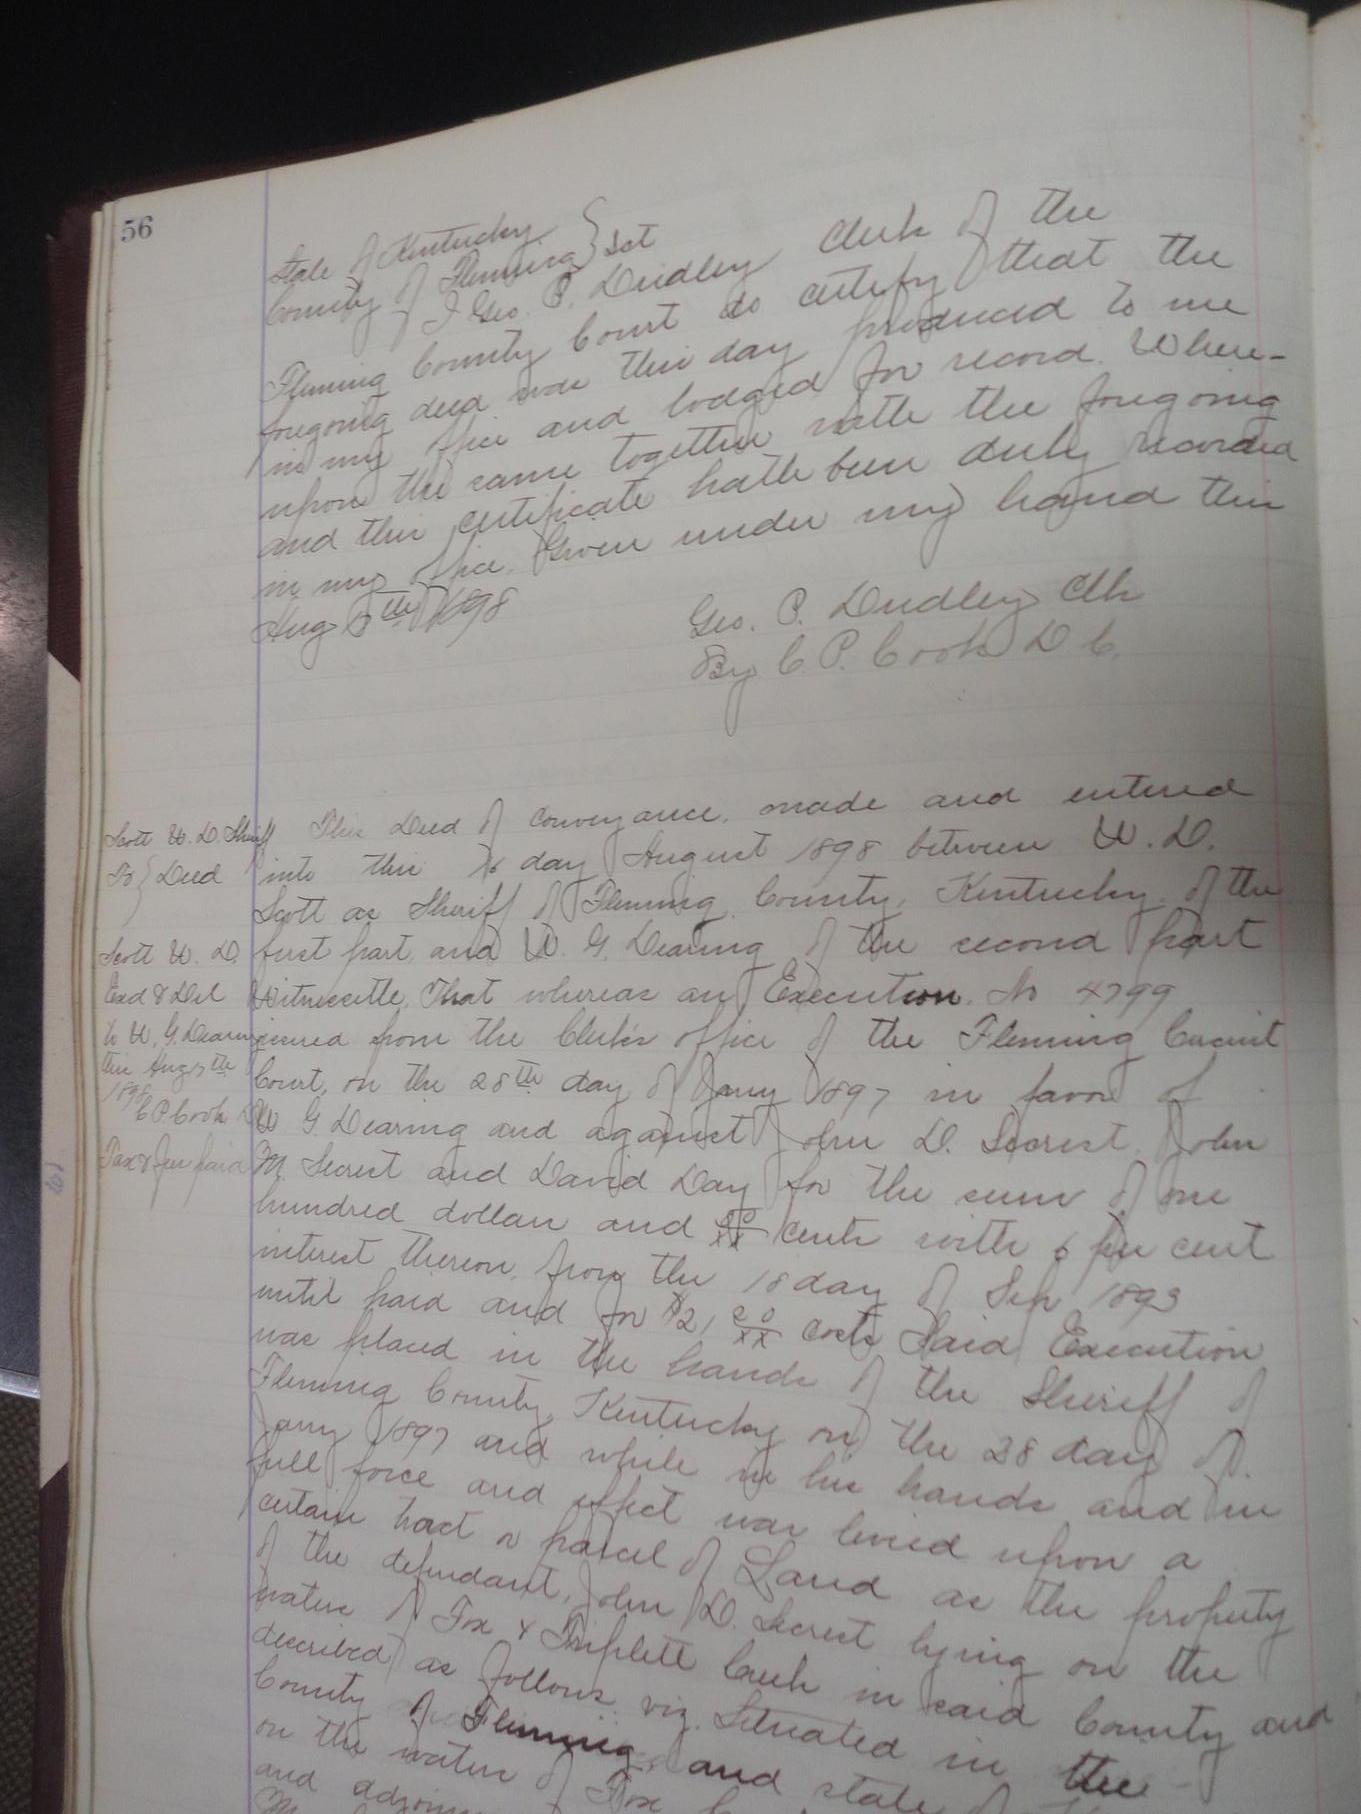 56
State of Kentucky }
County of Fleming } Sct
I Geo. P. Dudley Clerk of the
Fleming County Court do certify that the
foregoing deed was this day produced to me
in my office and lodged for record. Where-
upon the same together with the foregoing
and this certificate hath been duly recorded
in my office. Given under my hand this
Aug 5th 1898
Geo. P. Dudley Clk
By C. P. Cook D C.
Scott W. D. Sheriff
To } Deed
Scott W. D.
Exd & Del
to W. G. Dearing
this Aug 7th
1898
C P Cook
Tax & fee paid
This Deed of conveyance, made and entered
into this day August 1898 between W. D.
Scott as Sheriff of Fleming County, Kentucky of the
first part, and W. G. Dearing of the second part
Witnesseth, That whereas an Execution. No 4799
issued from the Clerk's office of the Fleming Circuit
Court, on the 28th day of Jany 1897 in favor of
W G. Dearing and against John D. Secrest, John
M. Secrest and David Day for the sum of one
hundred dollars and 00/xx cents with 6 per cent
interest thereon, from the 18 day of Sep 1893
until paid and for $2, 20/xx costs Said Execution
was placed in the hands of the Sheriff of
Fleming County, Kentucky on the 28 day of
Jany 1897 and while in his hands and in
full force and effect was levied upon a
certain tract or parcel of Land as the property
of the defendant, John D. Secrest lying on the
waters of Fox & Triplett Creek in said County and
described as follows viz. Situated in the
County of Fleming and state of
on the waters of Fox
and adjoining